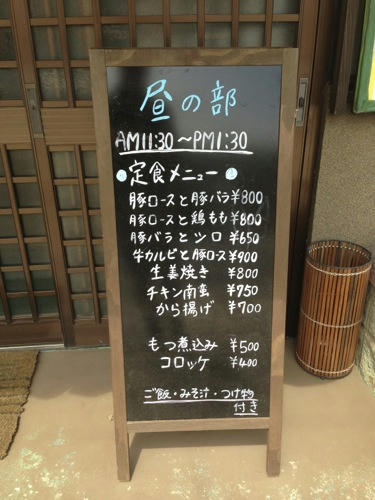 昼の部
AM11:30～PM1:30
定食メニュー
豚ロースと豚バラ¥800
豚ロースと鶏もも¥800
豚バラとシロ¥650
牛カルビと豚ロース¥900
生姜焼き ¥800
チキン南蛮 ¥750
から揚げ ¥700
もつ煮込み ¥500
コロッケ ¥400
ご飯・みそ汁・つけ物
付き